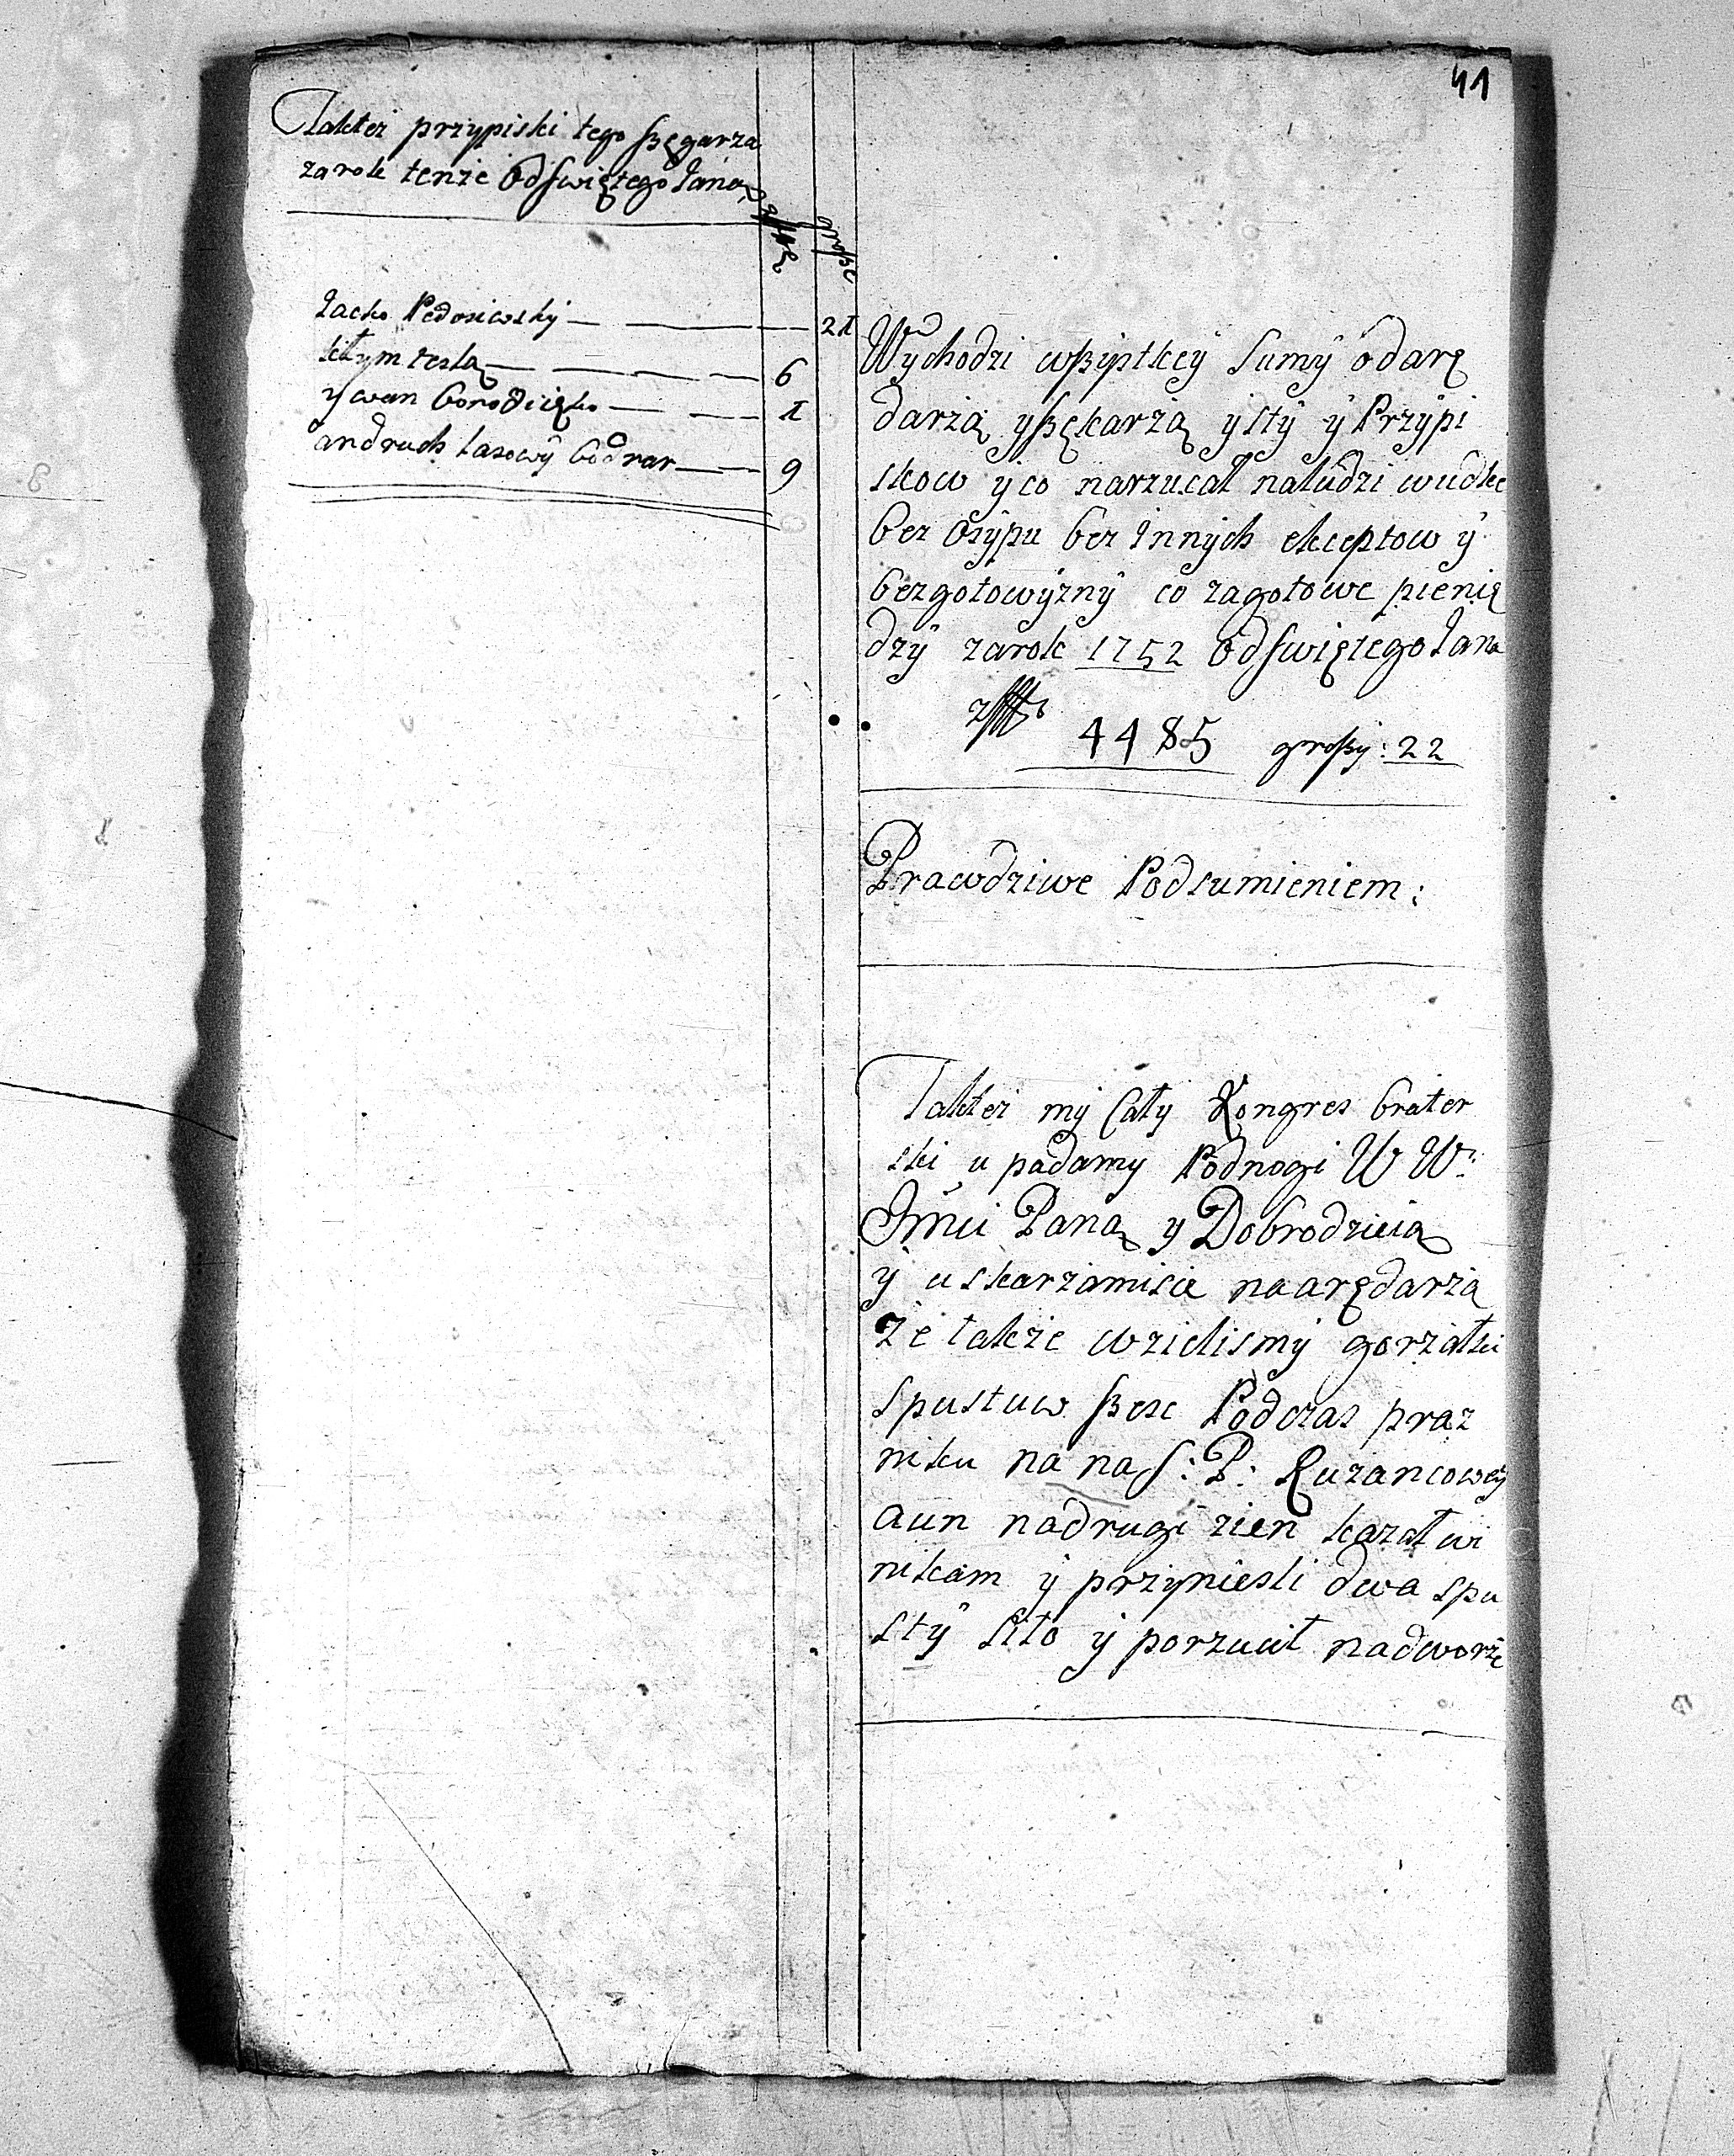 41
Taktez przypiski tego szęgarza
za rok tenze Od swiętego Jana
złotych
groszÿ
Jacko Fedosiewskij 21
kłym tesla 6
ywan borodięko 1
andruch lasowÿ bodnar 9
Wychodzi wszÿstkeÿ sumÿ od arę
darza y szękarza ysty ÿ Przÿpi
skow ÿ co narzucał na ludzi wudke
bez osÿpu bez Innÿch ekceptow ÿ
bez gotowÿznÿ co za gotowe pienię
dzÿ za rok 1752 Od swiętego Jana
4485 groszy: 22
Prawdziwe Pod sumieniem:
Taktez my Cały Kongres brater
ski u padamy Pod nogi W W:
Jmci Pana y Dobrodzieia
ÿ uskarzamisie na arędarza
Ze takze wzielismÿ gorzałki
spustuw szesc Podczas praz
niku na na S: P: Ruzancoweÿ
a un na drugi zien kazał wi
nikam ÿ przÿniesli dwa spu
stÿ sito ÿ porzucił na dworze